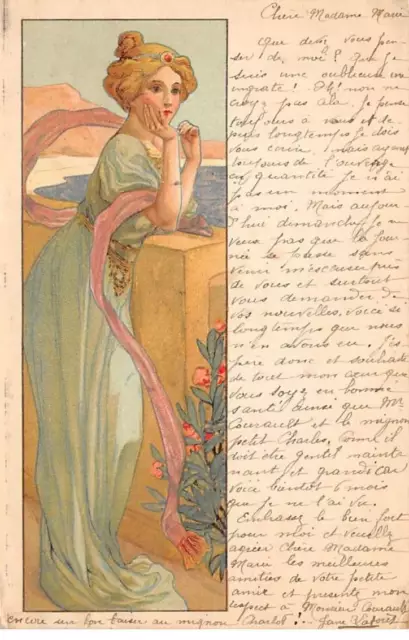 Chère Madame Marie
Que devez vous pen-
ser de moi? Que je
suis une oublieuse une
ingrate! Oh! non ne
croyez pas à la. Je pense
toujours à vous et de-
puis longtemps je dois
vous écrire mais ayant
toujours de l'ouvrage
en quantité je n'ai
pas un moment
à moi. Mais aujour-
d'hui dimanche je ne
veux pas que la jour-
née se passe sans
venir m'excuser près
de vous et surtout
vous demander de
vos nouvelles, voici si
longtemps que nous
n'en avons eu. J'es-
père donc et souhaite
de tout mon cœur que
vous soyez en bonne
santé ainsi que Mr
Courault et le mignon
petit Charles. Comme il
doit être gentil mainte
nant et grandi car
voici bientôt 6 mois
que je ne l'ai vu.
Embrassez le bien fort
pour moi et veuillez
agréer Chère Madame
Marie les meilleures
amitiés de votre petite
amie et présente mon
respect à Monsieur Courault
encore un bon baiser au mignon Charlot!.. Jane